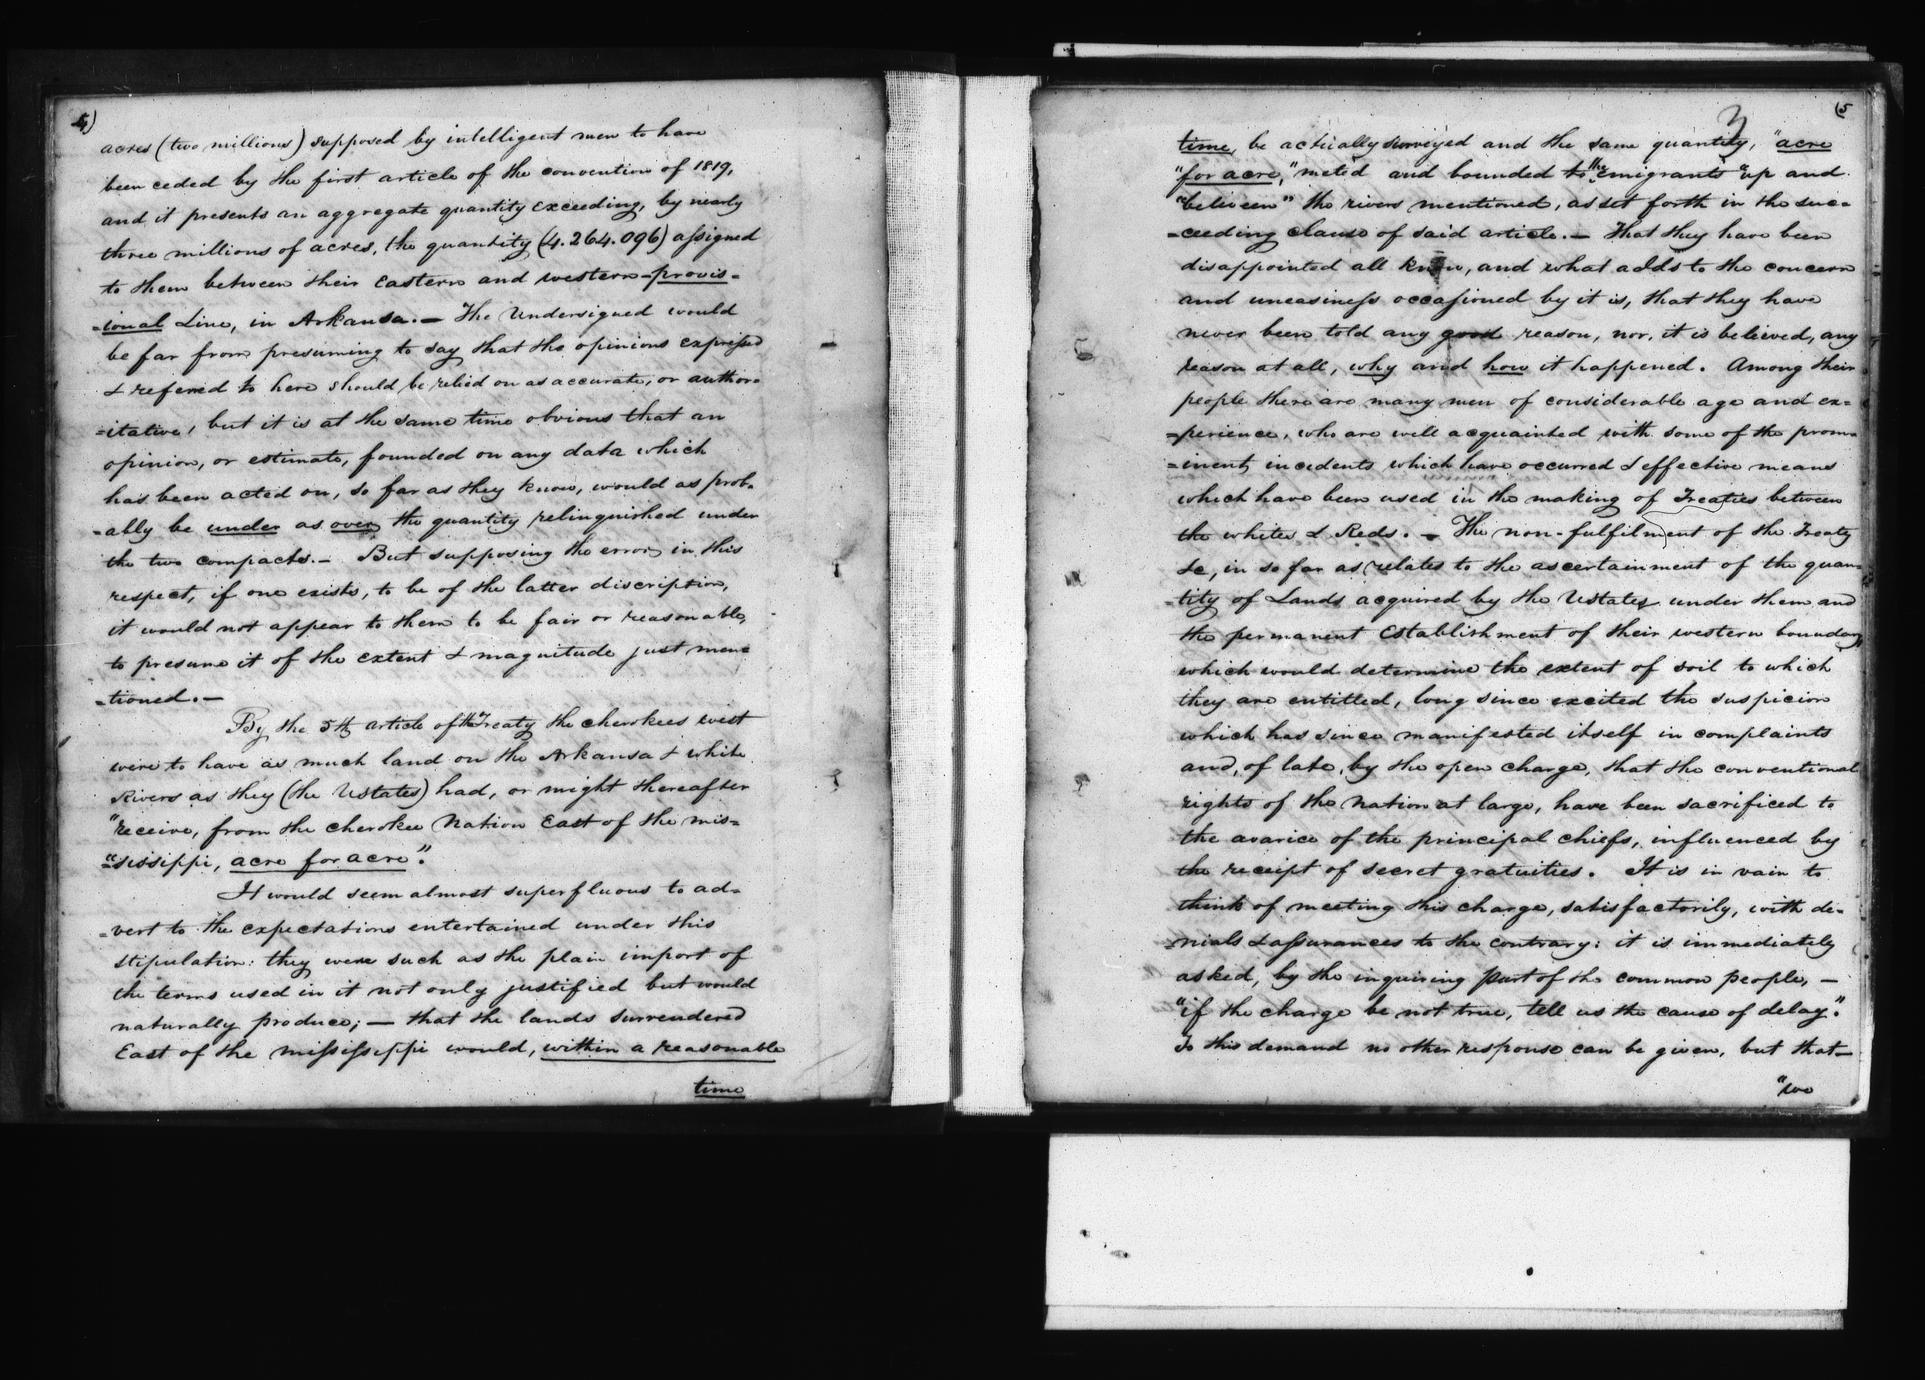 4)
acres (two millions) supposed by intelligent men to have
been ceded by the first article of the convention of 1819,
and it presents an aggregate quantity exceeding, by nearly
three millions of acres, the quantity (4.264.096) assigned
to them between their Eastern and western-provis=
=ional Line, in Arkansa. — The Undersigned would
be far from presuming to say that the opinions expressed
& referred to here should be relied on as accurate, or author=
=itative, but it is at the same time obvious that an
opinion, or estimate, founded on any data which
has been acted on, so far as they know, would as prob=
=ably be under as over the quantity relinquished under
the two compacts. — But supposing the error, in this
respect, if one exists, to be of the latter discription,
it would not appear to them to be fair or reasonable,
to presume it of the extent & magnitude just men=
=tioned. —
By the 5th article of the Treaty the cherokees west
were to have as much land on the Arkansa & white
Rivers as they (the UStates) had, or might thereafter
"receive, from the cherokee Nation East of the mis=
"sissippi, acre for acre".
It would seem almost superfluous to ad=
=vert to the expectations entertained under this
stipulation: they were such as the plain import of
the terms used in it not only justified but would
naturally produce; — that the lands surrendered
East of the mississippi would, within a reasonable
time
(5
3
time, be actually surveyed and the same quantity, "acre
"for acre," meted and bounded to the "Emigrants "up and
"between" the rivers mentioned, as set forth in the suc=
=ceeding clause of said article. — That they have been
disappointed all know, and what adds to the concern
and uneasiness occasioned by it is, that they have
never been told any good reason, nor, it is believed, any
reason at all, why and how it happened. Among their
people there are many men of considerable age and ex=
=perience, who are well acquainted with some of the prom=
=inent incedents which have occurred & effective means
which have been used in the making of Treaties between
the whites & Reds. — The non-fulfilment of the Treaty
&c, in so far as relates to the ascertainment of the quan=
=tity of Lands acquired by the UStates under them and
the permanent Establishment of their western boundary
which would determine the extent of soil to which
they are entitled, long since excited the suspicion
which has since manifested itself in complaints
and, of late, by the open charge, that the conventional
rights of the Nation at large, have been sacrificed to
the avarice of the principal chiefs, influenced by
the receipt of secret gratuities. It is in vain to
think of meeting this charge, satisfactorily, with de=
=nials & assurances to the contrary: it is immediately
asked, by the inquiring part of the common people, —
"if the charge be not true, tell us the cause of delay."
To this demand no other response can be given, but that—
"we